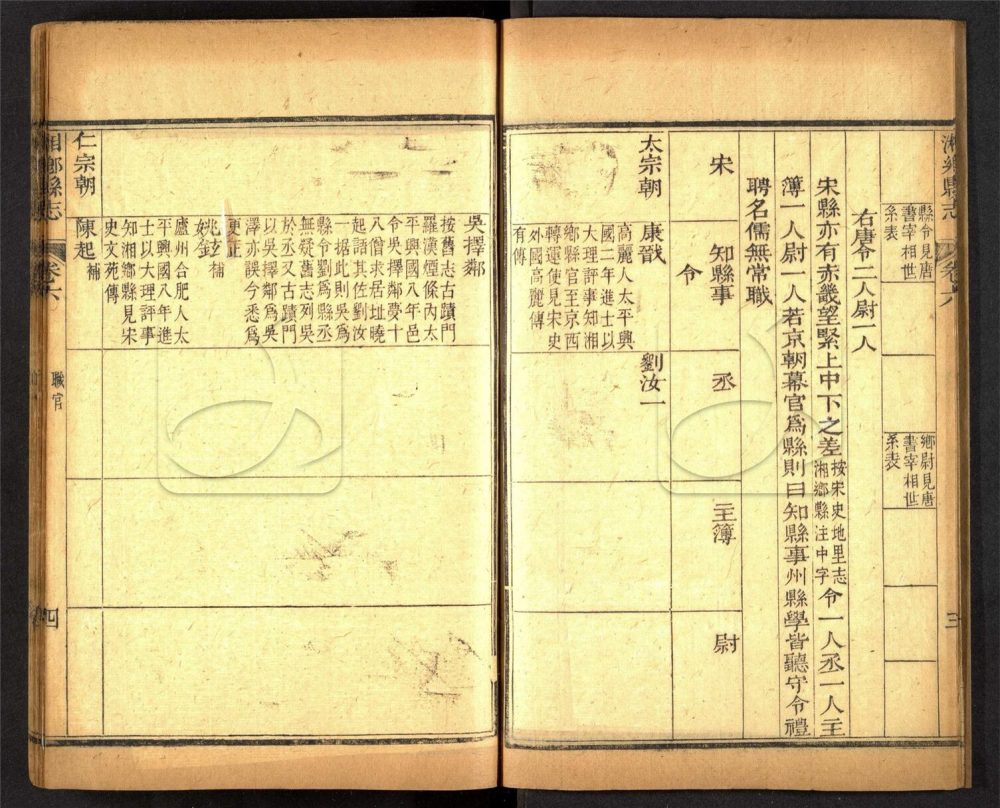 湘鄉縣志
卷六
三
縣令見唐
書宰相世
系表
鄉尉見唐
書宰相世
系表
右唐令二人尉一人
宋縣亦有赤畿望緊上中下之差按宋史地里志湘鄉縣注中字令一人丞一人主
簿一人尉一人若京朝幕官為縣則曰知縣事州縣學皆聽守令禮
聘名儒無常職
宋
知縣事
令
丞
主簿
尉
太宗朝
康戩
高麗人太平興
國二年進士以
大理評事知湘
鄉縣官至京西
轉運使見宋史
外國高麗傳
有傳
劉汝一
吳擇鄰
按舊志古蹟門
羅漢煙條內太
平興國八年邑
令吳擇鄰夢十
八僧求居址曉
起語其佐劉汝
一据此則吳為
縣令劉為縣丞
無疑舊志列吳
於丞又古蹟門
以吳擇鄰為吳
澤亦誤今悉為
更正
姚鉉補
廬州合肥人太
平興國八年進
士以大理評事
知湘鄉縣見宋
史文苑傳
仁宗朝
陳起補
湘鄉縣志
卷六
職官
四